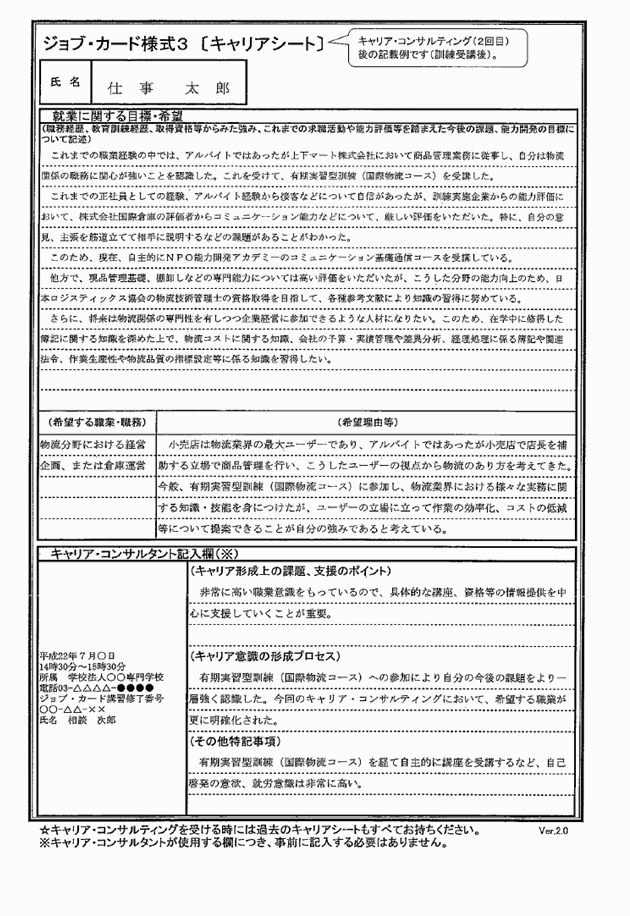 ジョブ・カード様式3 〔キャリアシート〕
キャリア・コンサルティング(2回目)
後の記載例です(訓練受講後)。
氏 名
仕 事 太 郎
就業に関する目標・希望
(職務経歴、教育訓練経歴、取得資格等からみた強み、これまでの求職活動や能力評価等を踏まえた今後の課題、能力開発の目標に
ついて記述)
これまでの職業経験の中では、アルバイトではあったが上下マート株式会社において商品管理業務に従事し、自分は物流
関係の職務に関心が強いことを認識した。これを受けて、有期実習型訓練(国際物流コース)を受講した。
これまでの正社員としての経験、アルバイト経験から接客などについて自信があったが、訓練実施企業からの能力評価に
おいて、株式会社国際倉庫の評価者からコミュニケーション能力などについて、厳しい評価をいただいた。特に、自分の意
見、主張を筋道立てて相手に説明するなどの課題があることがわかった。
このため、現在、自主的にNPO能力開発アカデミーのコミュニケーション基礎通信コースを受講している。
他方で、現品管理基礎、棚卸しなどの専門能力については高い評価をいただいたが、こうした分野の能力向上のため、日
本ロジスティックス協会の物流技術管理士の資格取得を目指して、各種参考文献により知識の習得に努めている。
さらに、将来は物流関係の専門性を有しつつ企業経営に参加できるような人材になりたい。このため、在学中に修得した
簿記に関する知識を深めた上で、物流コストに関する知識、会社の予算・実績管理や差異分析、経理処理に係る簿記や関連
法令、作業生産性や物流品質の指標設定等に係る知識を習得したい。
(希望する職業・職務)
(希望理由等)
物流分野における経営
企画、または倉庫運営
小売店は物流業界の最大ユーザーであり、アルバイトではあったが小売店で店長を補
助する立場で商品管理を行い、こうしたユーザーの視点から物流のあり方を考えてきた。
今般、有期実習型訓練(国際物流コース)に参加し、物流業界における様々な実務に関
する知識・技能を身につけたが、ユーザーの立場に立って作業の効率化、コストの低減
等について提案できることが自分の強みであると考えている。
キャリア・コンサルタント記入欄(※)
平成22年7月〇日
14時30分~15時30分
所属 学校法人〇〇専門学校
電話03-△△△△-●●●●
ジョブ・カード講習修了番号
〇〇-△△-××
氏名 相談 次郎
(キャリア形成上の課題、支援のポイント)
非常に高い職業意識をもっているので、具体的な講座、資格等の情報提供を中
心に支援していくことが重要。
(キャリア意識の形成プロセス)
有期実習型訓練(国際物流コース)への参加により自分の今後の課題をより一
層強く認識した。今回のキャリア・コンサルティングにおいて、希望する職業が
更に明確化された。
(その他特記事項)
有期実習型訓練(国際物流コース)を経て自主的に講座を受講するなど、自己
啓発の意欲、就労意識は非常に高い。
☆キャリア・コンサルティングを受ける時には過去のキャリアシートもすべてお持ちください。
Ver.2.0
※キャリア・コンサルタントが使用する欄につき、事前に記入する必要はありません。